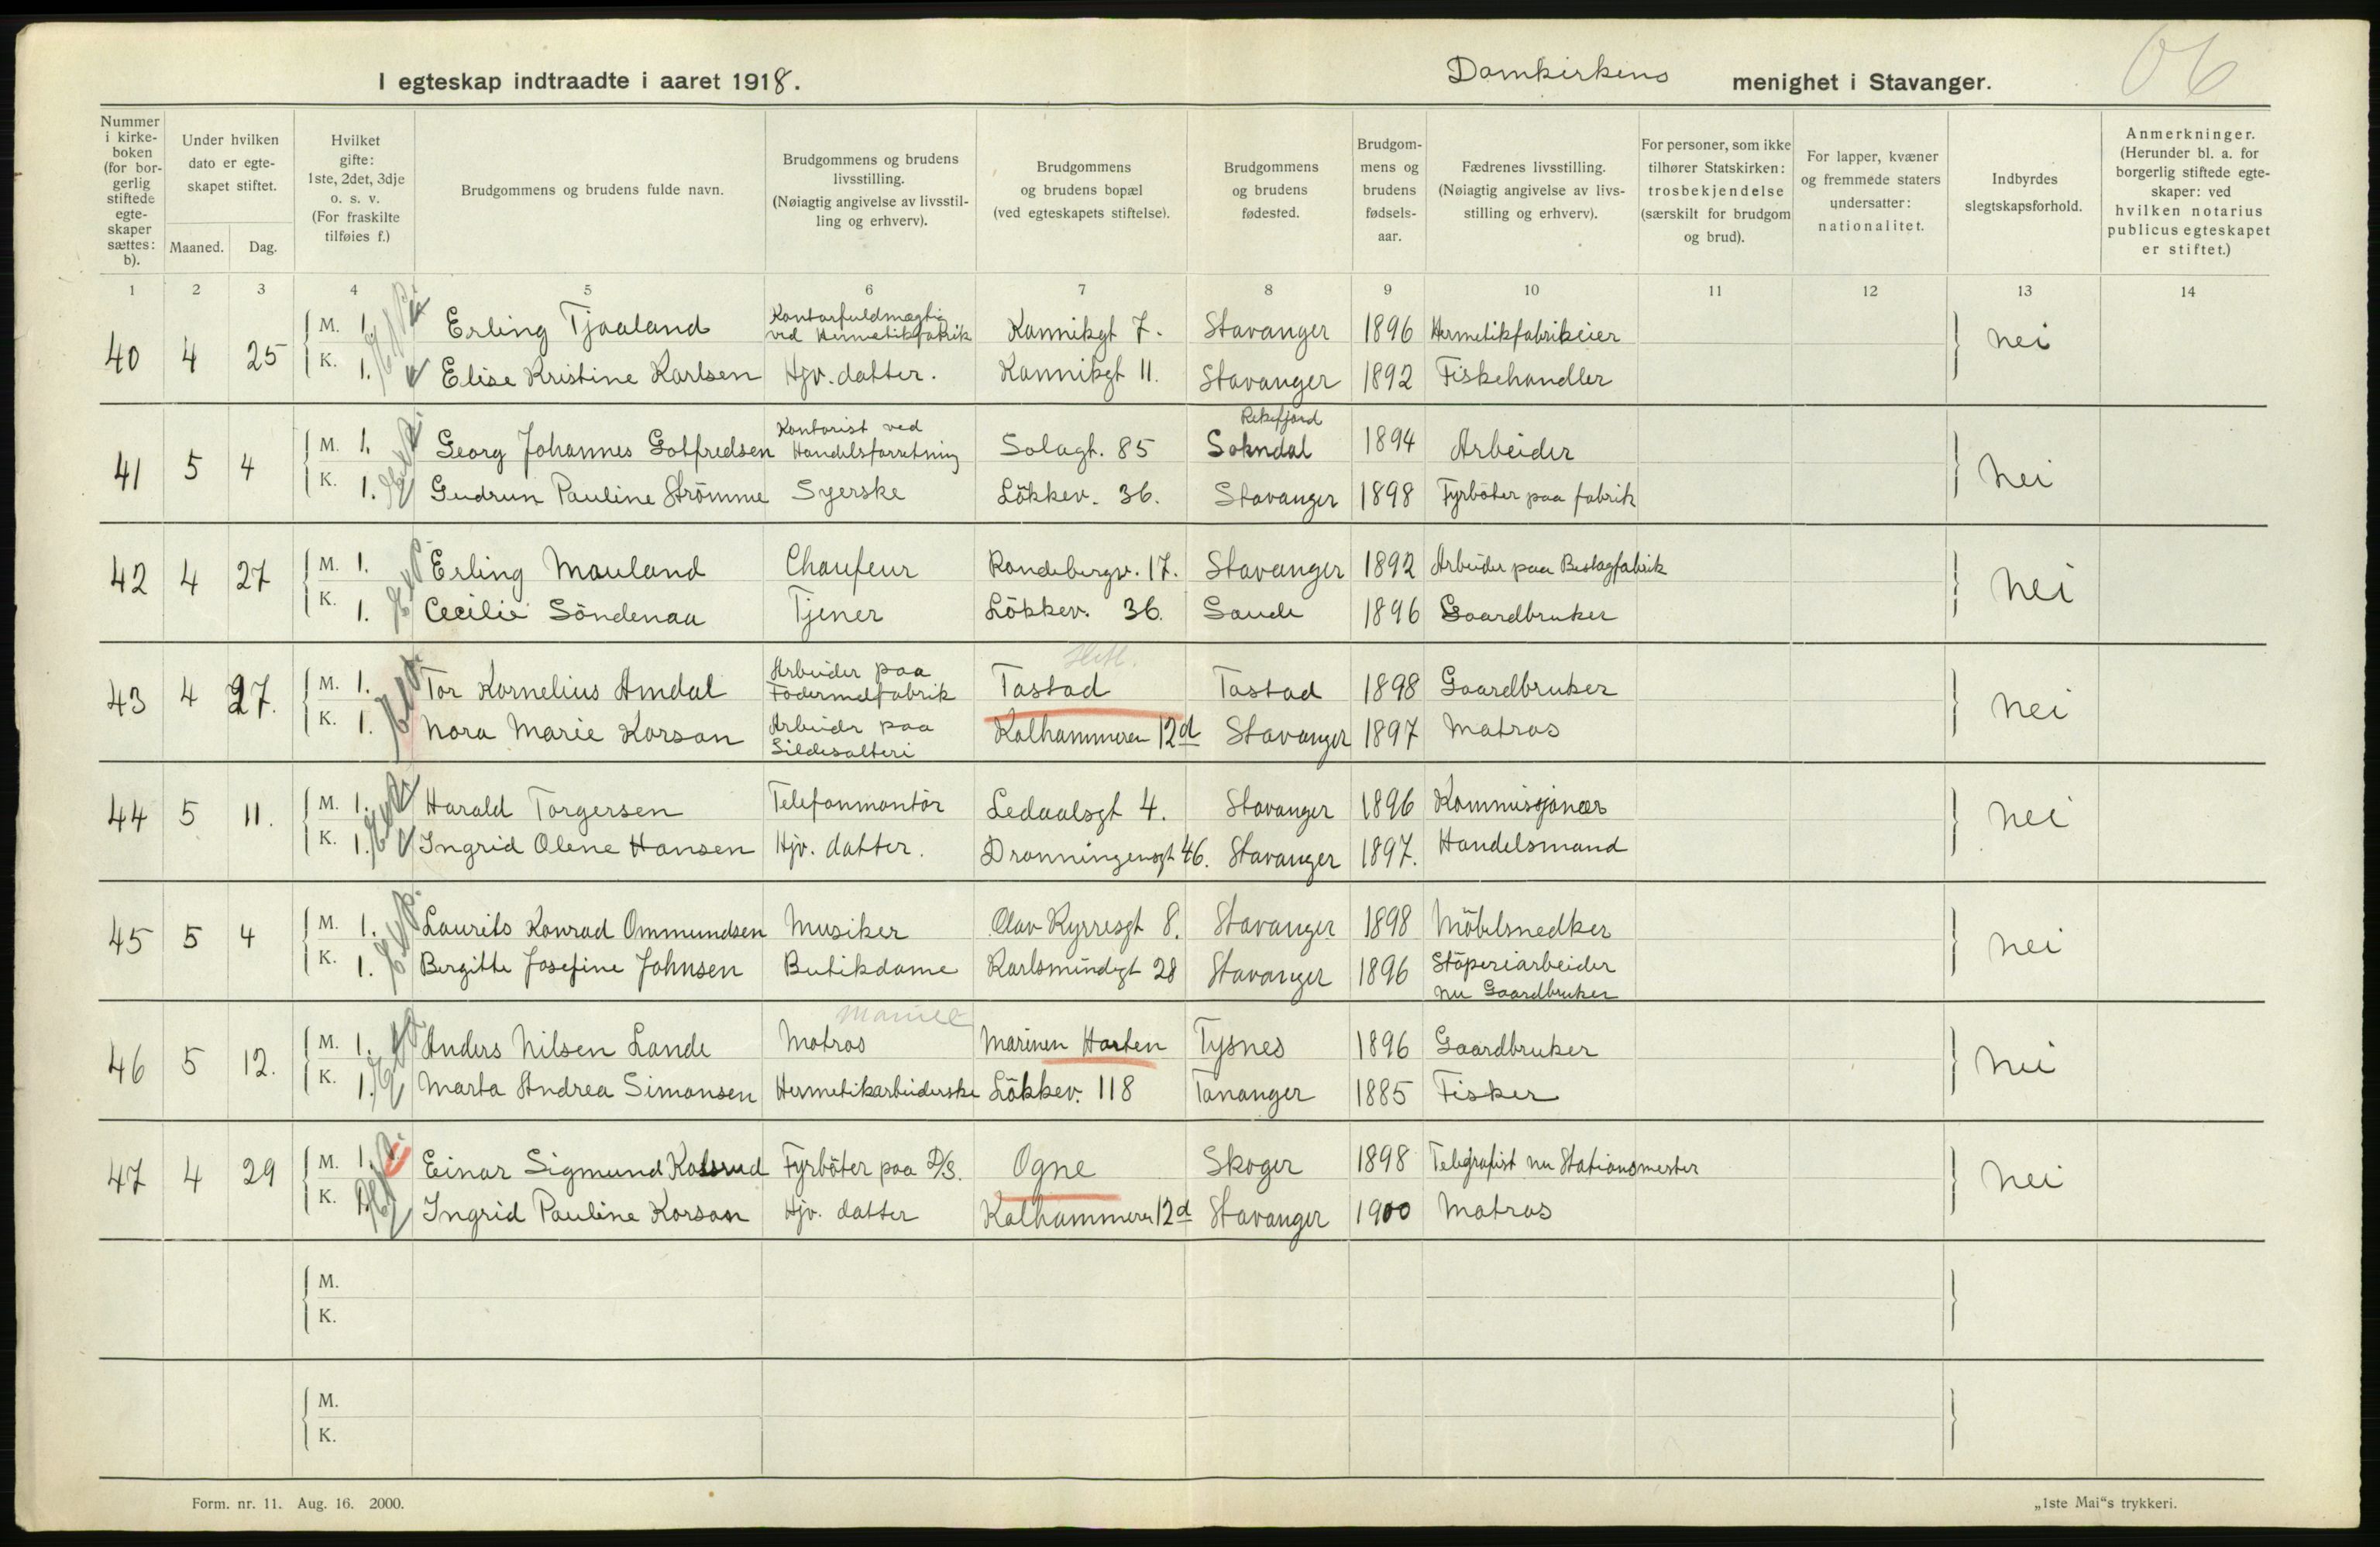 I egteskap indtraadte i aaret 1918. Domkirkens menighet i Stavanger.
Nummer i kirkeboken (for borgerlig stiftede egteskaper sættes: b).
Under hvilken dato er egteskapet stiftet.
Maaned. Dag.
Hvilket gifte: 1ste, 2det, 3dje o. s. v. (For fraskilte tilføies f.)
Brudgommens og brudens fulde navn.
Brudgommens og brudens livsstilling. (Nøiagtig angivelse av livsstilling og erhverv).
Brudgommens og brudens bopæl (ved egteskapets stiftelse).
Brudgommens og brudens fødested.
Brudgommens og brudens fødselsaar.
Fædrenes livsstilling. (Nøiagtig angivelse av livsstilling og erhverv).
For personer, som ikke tilhører Statskirken: trosbekjendelse (særskilt for brudgom og brud).
For lapper, kvæner og fremmede staters undersatter: nationalitet.
Indbyrdes slegtskapsforhold.
Anmerkninger. (Herunder bl. a. for borgerlig stiftede egteskaper: ved hvilken notarius publicus egteskapet er stiftet.)
1 2 3 4 5 6 7 8 9 10 11 12 13 14
40 4 25 M. 1. Erling Tjaaland Kontorfuldmægtig ved Hermetikfabrik Kannikgt 7. Stavanger 1896 Hermetikfabrikeier nei
K. 1. Elise Kristine Karlsen Hjv. datter. Kannikgt 11. Stavanger 1892 Fiskehandler
41 5 4 M. 1. Georg Johannes Gotfredsen Kontorist ved Handelsforretning Solagt. 85 Rekefjord Sokndal 1894 Arbeider nei
K. 1. Gudrun Pauline Strömme Syerske Lökkev. 36. Stavanger 1898 Fyrböter paa fabrik
42 4 27 M. 1. Erling Mauland Chaufeur Randebergv. 17. Stavanger 1892 Arbeider paa Beslagfabrik nei
K. 1. Cecilie Söndenaa Tjener Lökkev. 36. Saude 1896 Gaardbruker
43 4 27. M. 1. Tor Kornelius Amdal Arbeider paa Fodermelfabrik Tastad Tastad 1898 Gaardbruker nei
K. 1. Nora Marie Korsan Arbeider paa Sildesalteri Kalhammeren 12d Stavanger 1897 Matros
44 5 11. M. 1. Harald Torgersen Telefonmontör Ledaalsgt 4. Stavanger 1896 Kommissjonær nei
K. 1. Ingrid Olene Hansen Hjv. datter. Dronningensgt 46. Stavanger 1897. Handelsmand
45 5 4 M. 1. Laurits Konrad Ommundsen Musiker Olav Kyrresgt 8. Stavanger 1898 Möbelsnedker nei
K. 1. Bergitte Josefine Johnsen Butikdame Karlsmindegt 28 Stavanger 1896 Stöperiarbeider nu Gaardbruker
46 5 12. M. 1. Anders Nilsen Lande Matros Marinen Horten Tysnes 1896 Gaardbruker nei
K. 1. Marta Andrea Simonsen Hermetikarbeiderske Lökkev. 118 Tananger 1885 Fisker
47 4 29 M. 1. Einar Sigmund Kolsrud Fyrböter paa D/S. Ogne Skoger 1898 Telegrafist nu Stationsmester nei
K. 1. Ingrid Pauline Korsan Hjv. datter Kalhammeren 12d Stavanger 1900 Matros
M.
K.
M.
K.
Form. nr. 11. Aug. 16. 2000. „1ste Mai“s trykkeri.